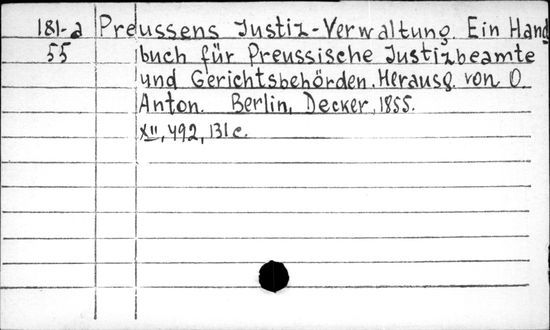 181-a Preussens Justiz-Verwaltung. Ein Hand
55 buch für Preussische Justizbeamte
und Gerichtsbehörden. Herausg. von O.
Anton. Berlin, Decker, 1855.
XII, 492, 131 c.